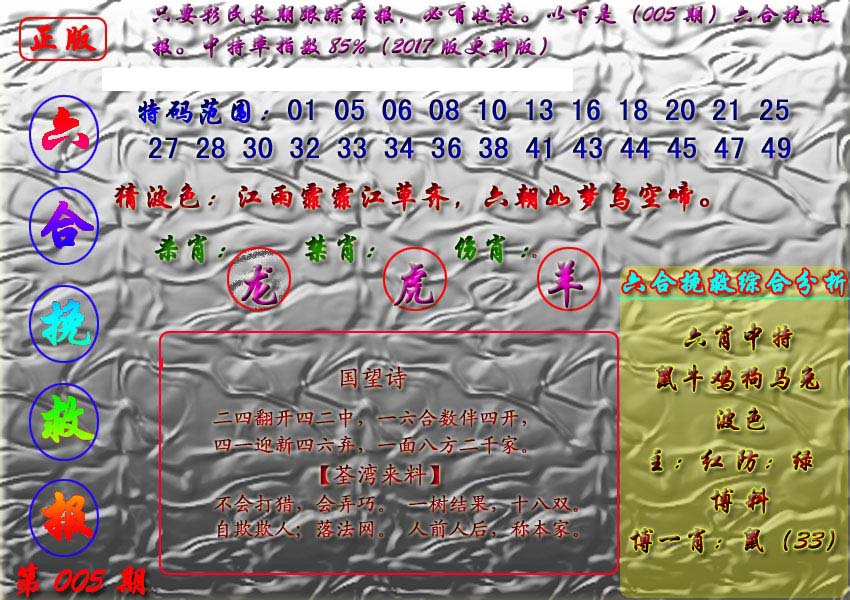 正版
只要彩民长期跟踪本报，必有收获。以下是（005期）六合挽救
报。中特率指数85%（2017版更新版）
六
合
挽
救
报
第005期
特码范围：01 05 06 08 10 13 16 18 20 21 25
27 28 30 32 33 34 36 38 41 43 44 45 47 49
猜波色：江雨霏霏江草齐，六朝如梦鸟空啼。
杀肖：龙 禁肖：虎 伤肖：羊
国望诗
二四翻开四二中，一六合数伴四开，
四一迎新四六弃，一面八方二千家。
【荃湾来料】
不会打猎，会弄巧。 一树结果，十八双。
自欺欺人；落法网。 人前人后，称本家。
六合挽救综合分析
六肖中特
鼠牛鸡狗马兔
波色
主：红防：绿
博料
博一肖：鼠（33）